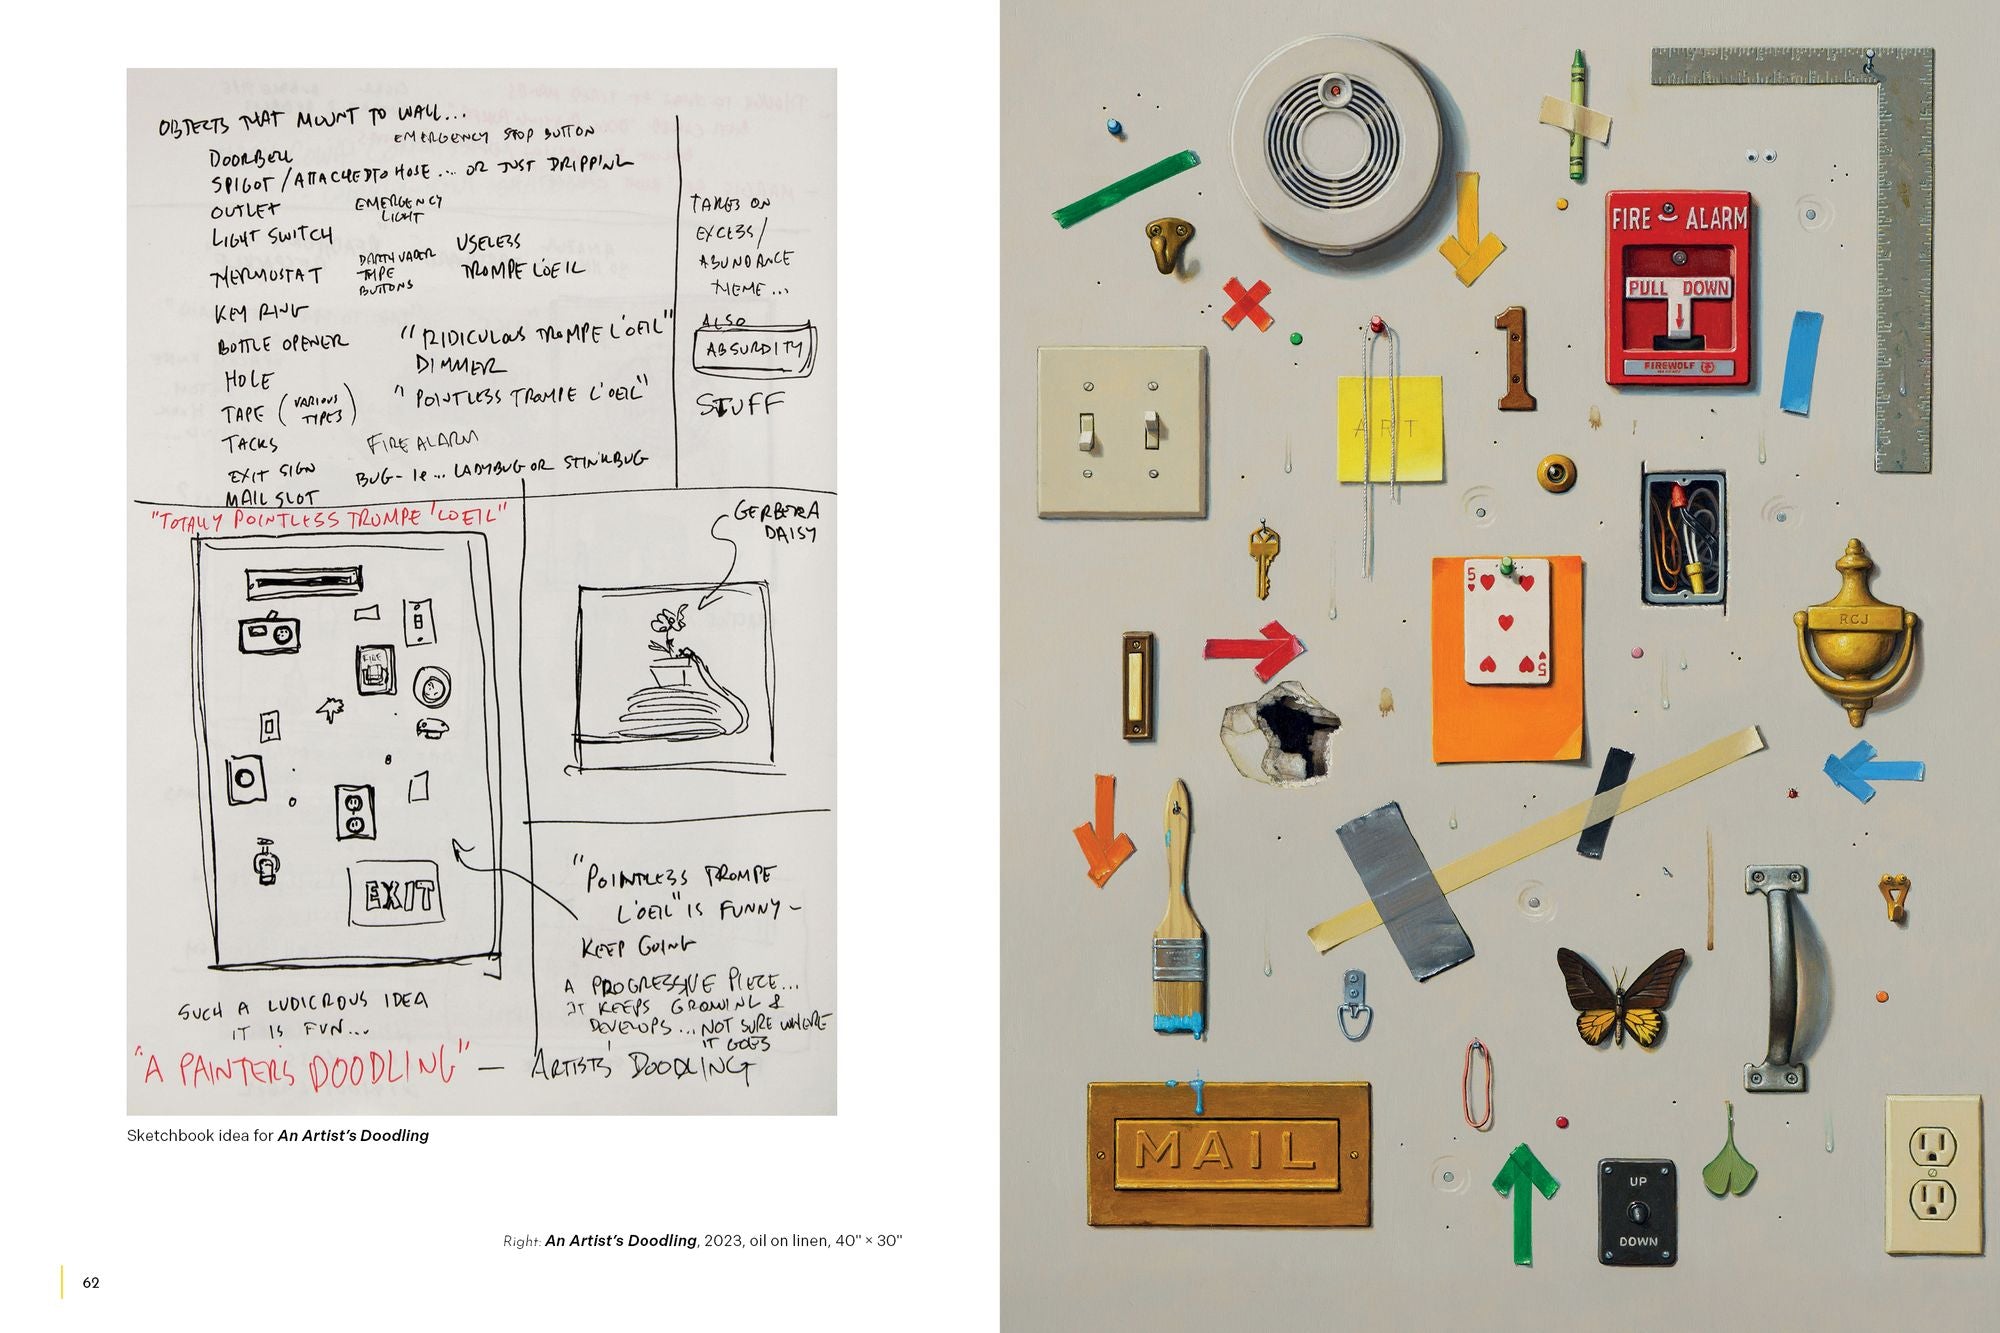 OBJECTS THAT MOUNT TO WALL...
EMERGENCY STOP BUTTON
DOORBELL
SPIGOT / ATTACHED TO HOSE ... OR JUST DRIPPING
OUTLET
EMERGENCY
LIGHT
LIGHT SWITCH
THERMOSTAT
DARTH VADER
TYPE
BUTTONS
USELESS
TROMPE L'OEIL
KEY RING
BOTTLE OPENER
"RIDICULOUS TROMPE L'OEIL"
DIMMER
HOLE
"POINTLESS TROMPE L'OEIL"
TAPE (VARIOUS
TYPES)
TACKS
FIRE ALARM
EXIT SIGN
BUG - ie ... LADYBUG OR STINKBUG
MAIL SLOT
TAKES ON
EXCESS /
ABUNDANCE
THEME ...
ALSO
ABSURDITY
STUFF
"TOTALLY POINTLESS TROMPE L'OEIL"
FIRE
EXIT
GERBERA
DAISY
SUCH A LUDICROUS IDEA
IT IS FUN...
"POINTLESS TROMPE
L'OEIL" IS FUNNY -
KEEP GOING
A PROGRESSIVE PIECE...
IT KEEPS GROWING &
DEVELOPS ... NOT SURE WHERE
IT GOES
"A PAINTER'S DOODLING" — ARTIST'S DOODLING
Sketchbook idea for An Artist's Doodling
Right: An Artist's Doodling, 2023, oil on linen, 40" × 30"
62
FIRE ALARM
PULL DOWN
FIREWOLF
1
ART
5
5
RCJ
MAIL
UP
DOWN